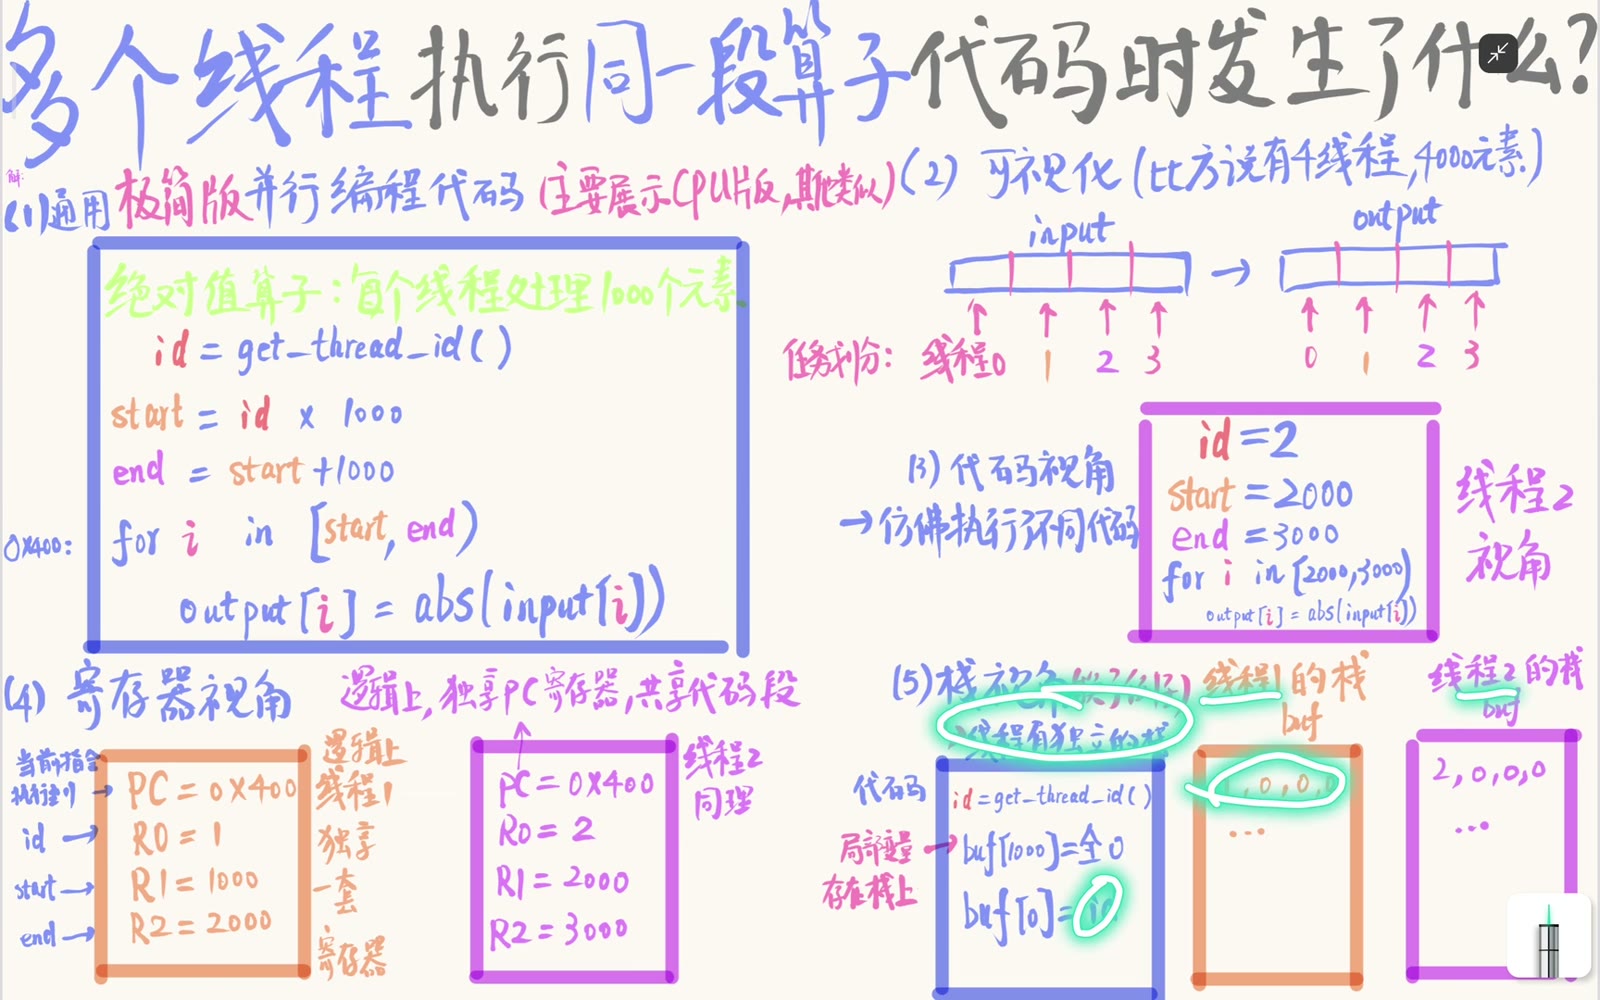 多个线程执行同一段算子代码时发生了什么?
解:
(1)通用极简版并行编程代码(主要展示CPU版,其他类似)
绝对值算子:每个线程处理1000个元素
id = get_thread_id()
start = id x 1000
end = start+1000
0x400:
for i in [start, end)
output[i] = abs(input[i])
(2) 可视化(比方说有4线程,4000元素)
input
output
任务划分: 线程0 1 2 3
0 1 2 3
(3) 代码视角
→仿佛执行了不同代码
id=2
start=2000
end=3000
for i in [2000,3000)
output[i] = abs(input[i])
线程2
视角
(4) 寄存器视角
逻辑上,独享PC寄存器,共享代码段
当前指令
执行到
id
start
end
PC=0x400
R0=1
R1=1000
R2=2000
逻辑上
线程1
独享
一套
寄存器
PC=0x400
R0=2
R1=2000
R2=3000
线程2
同理
(5)栈视角
线程有独立的栈
代码
局部变量
存在栈上
id=get_thread_id()
buf[1000]=全0
buf[0]=id
线程1的栈
buf
,0,0,0
...
线程2的栈
buf
2,0,0,0
...